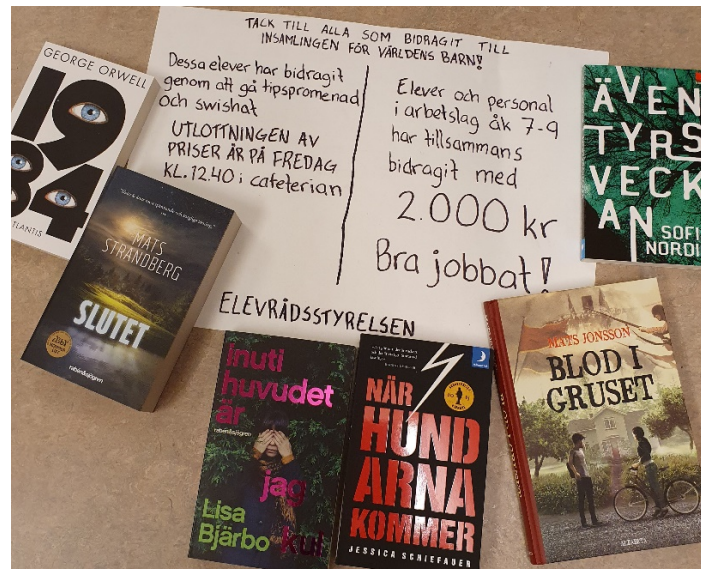 TACK TILL ALLA SOM BIDRAGIT TILL
INSAMLINGEN FÖR VÄRLDENS BARN!
Dessa elever har bidragit
genom att gå tipspromenad
och swishat
UTLOTTNINGEN AV
PRISER ÄR PÅ FREDAG
KL. 12.40 i cafeterian
Elever och personal
i arbetslag åk 7-9
har tillsammans
bidragit med
2.000 kr
Bra jobbat!
ELEVRÅDSSTYRELSEN
GEORGE ORWELL
19
84
TLANTIS
MATS
STRANDBERG
SLUTET
rabén&sjögren
ÄVEN
TYRS
VECK
AN
SOFI
NORDI
Inuti
huvudet
är
rabén&sjögren
jag
Lisa
Bjärbo
kul
NÄR
HUND
ARNA
KOMMER
JESSICA SCHIEFAUER
MATS JONSSON
BLOD I
GRUSET